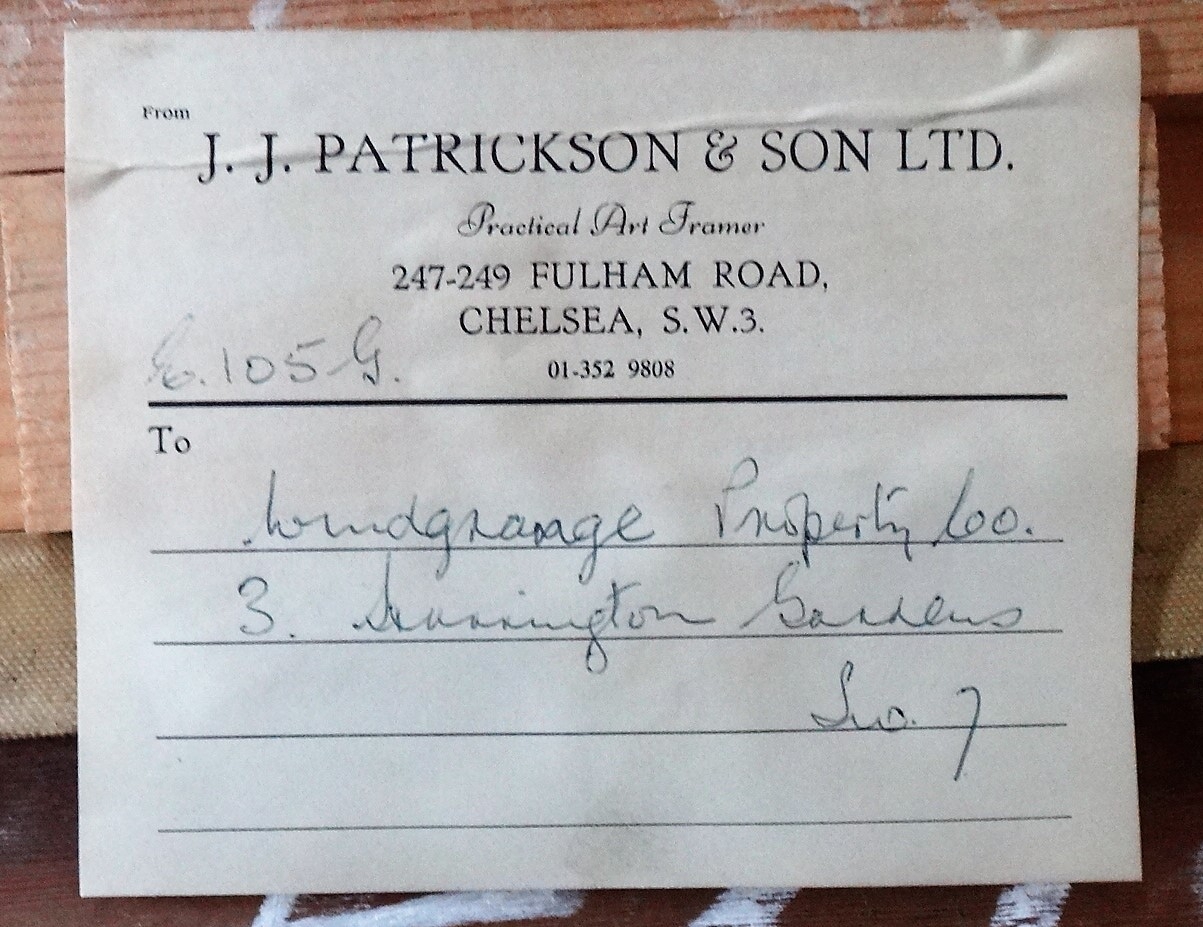 From
J. J. PATRICKSON & SON LTD.
Practical Art Framer
247-249 FULHAM ROAD,
CHELSEA, S.W.3.
01-352 9808
E.105 G.
To
Windgrange Property Co.
3. Harrington Gardens
S.W. 7